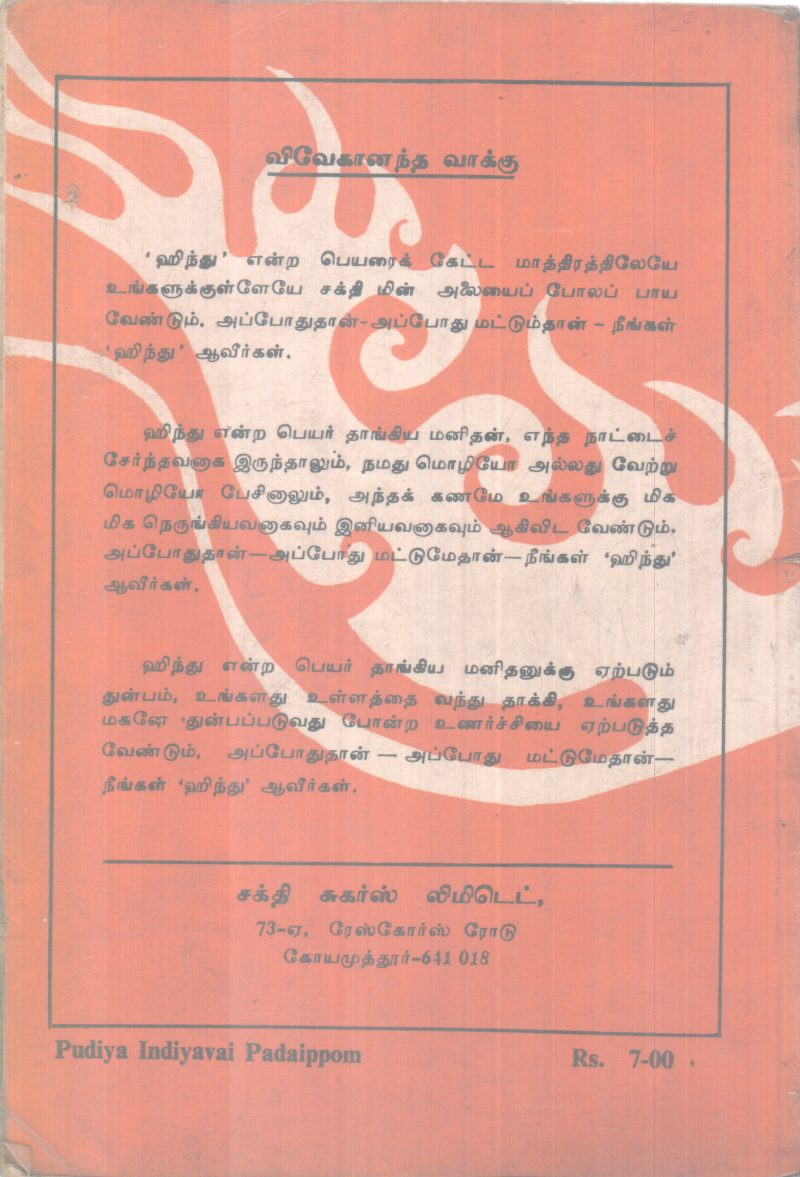 விவேகானந்த வாக்கு
‘ஹிந்து’ என்ற பெயரைக் கேட்ட மாத்திரத்திலேயே
உங்களுக்குள்ளேயே சக்தி மின் அலையைப் போலப் பாய
வேண்டும். அப்போதுதான்-அப்போது மட்டும்தான் – நீங்கள்
‘ஹிந்து’ ஆவீர்கள்.
ஹிந்து என்ற பெயர் தாங்கிய மனிதன், எந்த நாட்டைச்
சேர்ந்தவனாக இருந்தாலும், நமது மொழியோ அல்லது வேற்று
மொழியோ பேசினாலும், அந்தக் கணமே உங்களுக்கு மிக
மிக நெருங்கியவனாகவும் இனியவனாகவும் ஆகிவிட வேண்டும்.
அப்போதுதான்—அப்போது மட்டுமேதான்—நீங்கள் ‘ஹிந்து’
ஆவீர்கள்.
ஹிந்து என்ற பெயர் தாங்கிய மனிதனுக்கு ஏற்படும்
துன்பம், உங்களது உள்ளத்தை வந்து தாக்கி, உங்களது
மகனே துன்பப்படுவது போன்ற உணர்ச்சியை ஏற்படுத்த
வேண்டும், அப்போதுதான் — அப்போது மட்டுமேதான்—
நீங்கள் ‘ஹிந்து’ ஆவீர்கள்.
சக்தி சுகர்ஸ் லிமிடெட்,
73-ஏ, ரேஸ்கோர்ஸ் ரோடு
கோயமுத்தூர்-641 018
Pudiya Indiyavai Padaippom Rs. 7-00